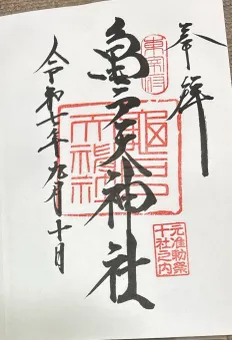 奉拝
東宰府
亀戸天神社
元准勅祭
十社之内
令和七年九月十日